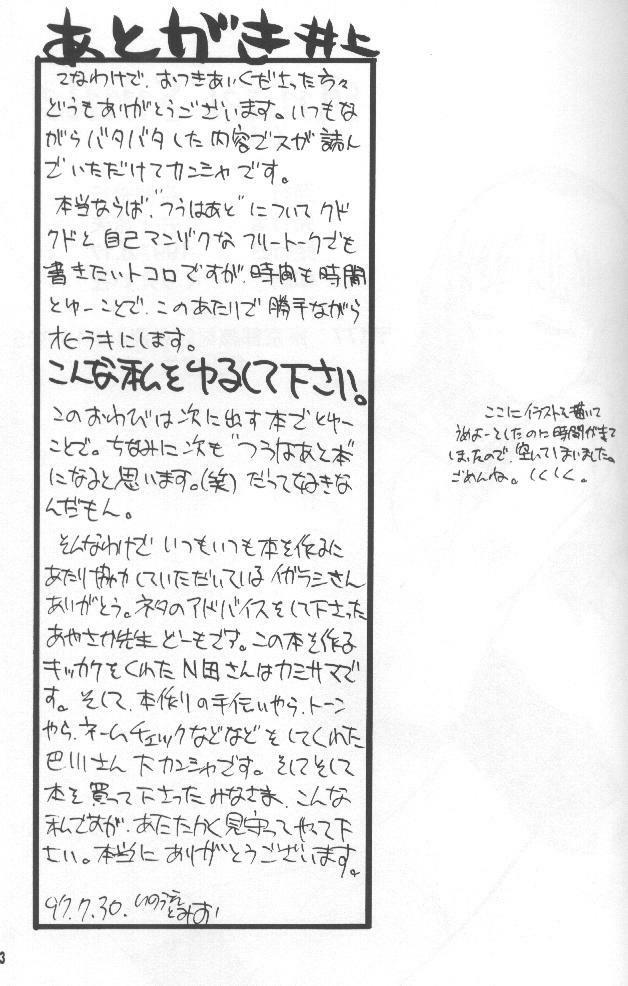 あとがき 井上
てなわけで、おつきあいくださった方々
どうもありがとうございます。いつもな
がらバタバタした内容でスが読ん
でいただけてカンシャです。
本当ならば、"つうはあと"についてクド
クドと自己マンゾクなフリートークでも
書きたいトコロですが、時間も時間
とゆーことで、このあたりで勝手ながら
オヒラキにします。
こんな私をゆるして下さい。
このおわびは次に出す本でとゆー
ことで。ちなみに次も"つうはあと本"
になると思います。(笑)だって好きな
んだもん。
そんなわけでいつもいつも本を作るに
あたり協力していただいているイガラシさん
ありがとう。ネタのアドバイスをして下さった
あやさか先生どーもです。この本を作る
キッカケをくれたN田さんはカミサマで
す。そして、本作りの手伝いやら、トーン
やら、ネームチェックなどなどをしてくれた
巴川さん大カンシャです。そしてそして
本を買って下さったみなさま、こんな
私ですが、あたたかく見守ってやって下
さい。本当にありがとうございます。
97.7.30.いのうえ
とみおい
ここにイラストを描いて
うめよーとしたのに時間が来て
しまったので、空いてしまいました。
ごめんね。しくしく。
3